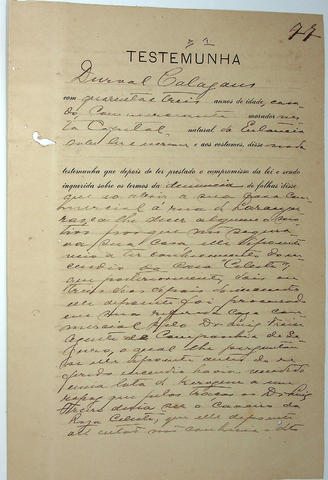 77
5ª
TESTEMUNHA
Durval Calazans
com quarenta e tres annos de idade, casa-
do, Commerciante morador nes-
ta Capital, natural de Estancia
sabe ler e escrever e aos costumes, disse nada
testemunha que depois de ter prestado o compromisso da lei e sendo
inquerida sobre os termos da denuncia de folhas disse
que ao abrir a sua casa com-
mercial á rua de
lhe dizer alguem
por que
sua casa elle depoente
veio a ter conhecimento do in-
cendio da Casa Celeste,
que posteriormente, dois ou
tres dias depois do incendio
elle depoente foi procurado
em sua referida casa com-
mercial pelo Dr Luiz
Agente da Companhia de Se-
guros, o qual lhe perguntou
se elle depoente antes do re-
ferido incendio havia vendido
uma lata de kerozene a um
rapaz que pelos traços o Dr Luiz
dizia ser o caixeiro da
Casa Celeste, que elle depoente
até então não conhecia o dito